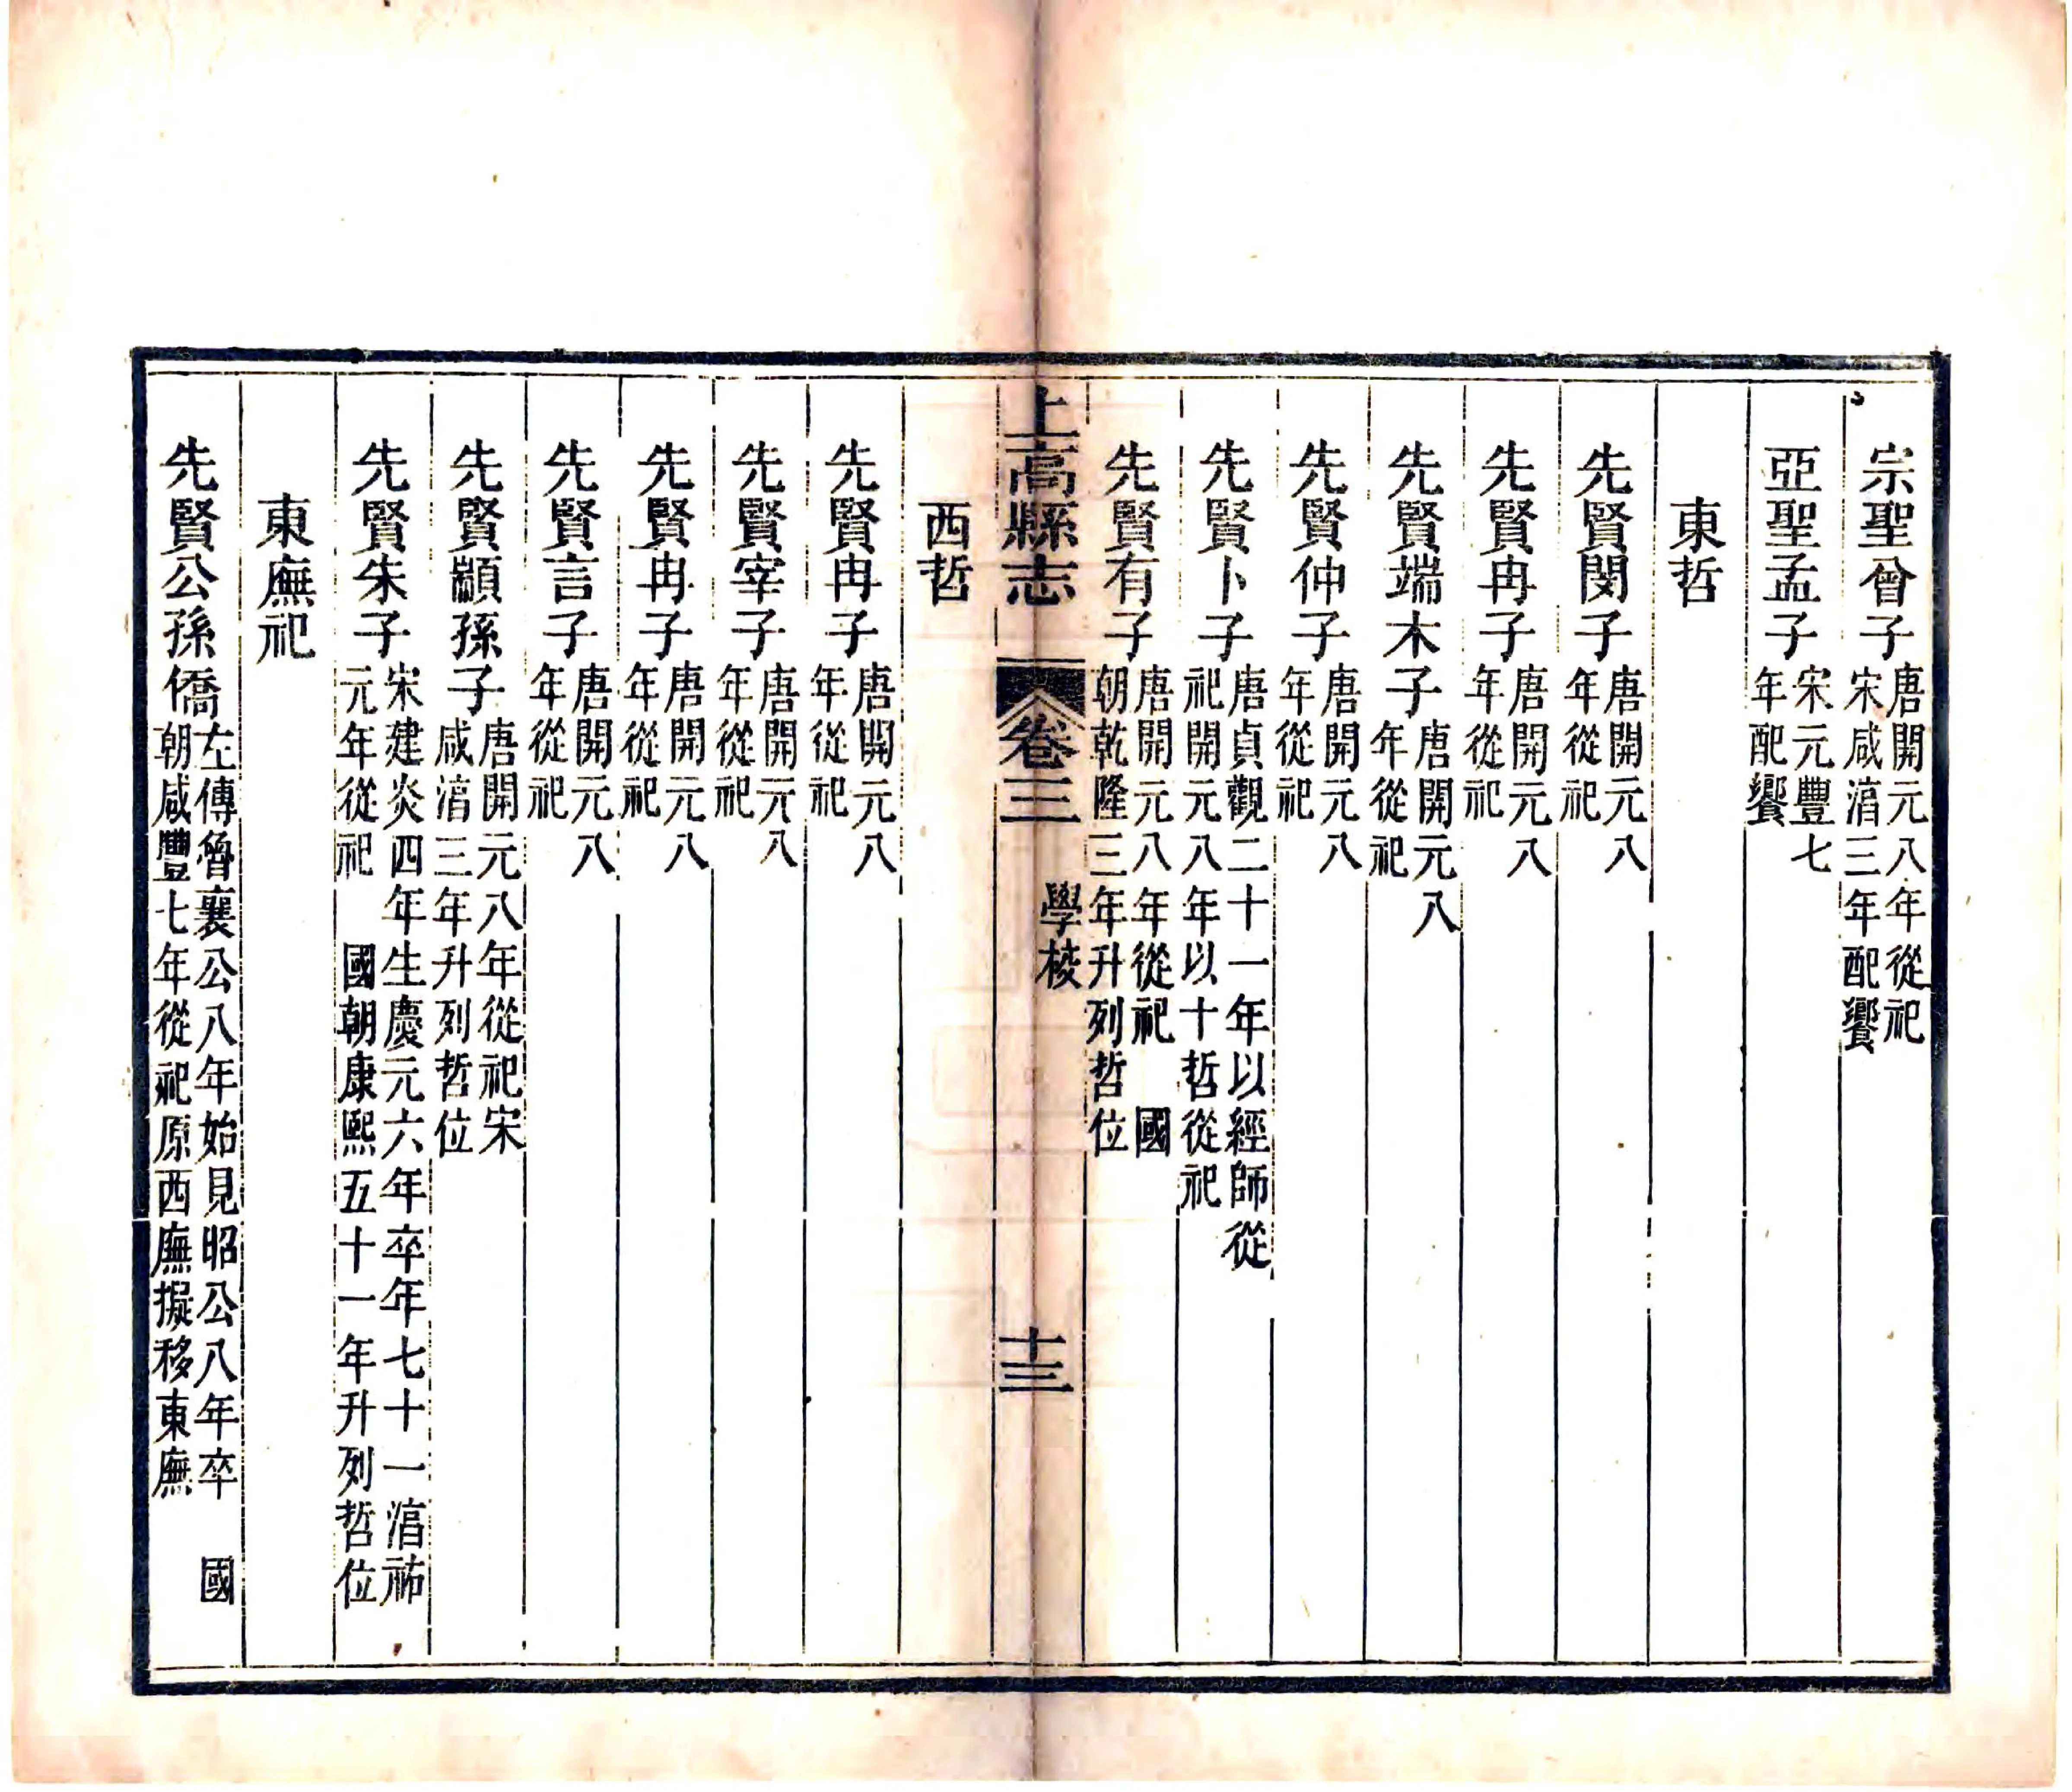 宗聖曾子唐開元八年從祀宋咸淯三年配饗
亞聖孟子宋元豐七年配饗
東哲
先賢閔子唐開元八年從祀
先賢冉子唐開元八年從祀
先賢端木子唐開元八年從祀
先賢仲子唐開元八年從祀
先賢卜子唐貞觀二十一年以經師從祀開元八年以十哲從祀
先賢有子唐開元八年從祀 國朝乾隆三年升列哲位
上高縣志 卷三 學校 十三
西哲
先賢冉子唐開元八年從祀
先賢宰子唐開元八年從祀
先賢冉子唐開元八年從祀
先賢言子唐開元八年從祀
先賢顓孫子唐開元八年從祀宋咸淯三年升列哲位
先賢朱子宋建炎四年生慶元六年卒年七十一淯祐元年從祀 國朝康熙五十一年升列哲位
東廡祀
先賢公孫僑左傳魯襄公八年始見昭公八年卒 國朝咸豐七年從祀原西廡擬移東廡